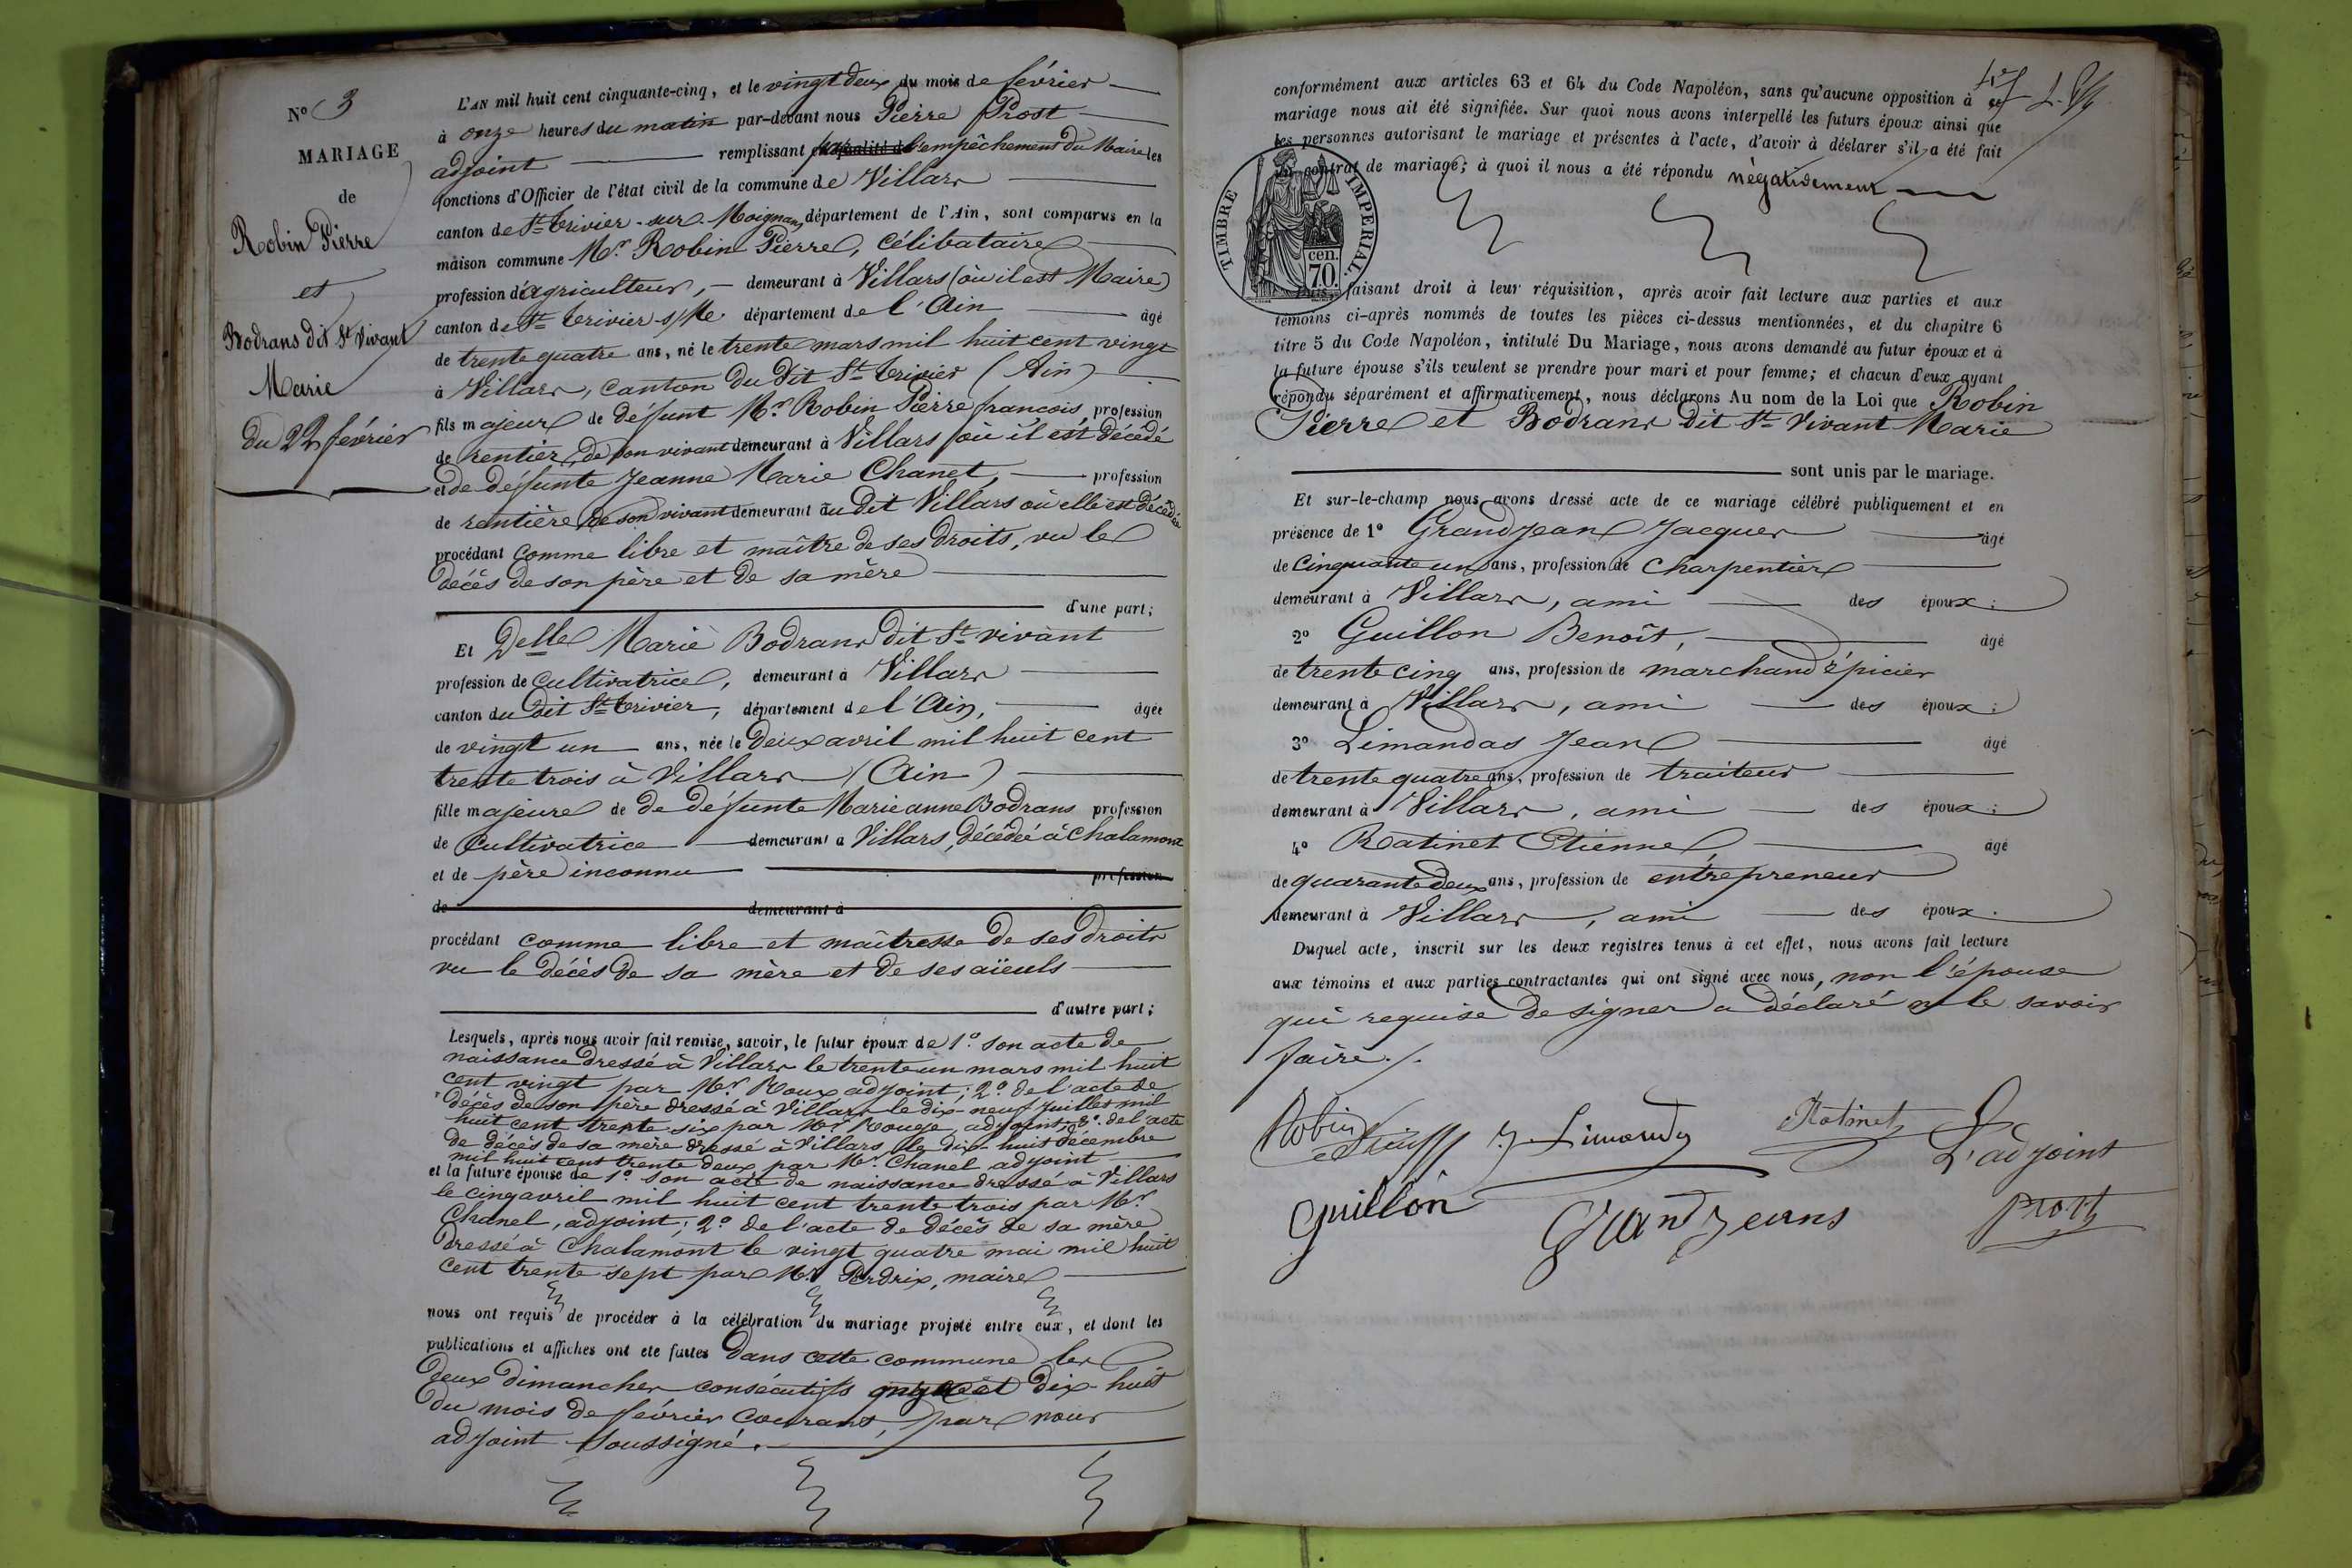 N° 3
MARIAGE
de
Robin Pierre
et
Bodrans dit St Vivant
Marie
du 22 février
L'AN mil huit cent cinquante-cinq, et le vingt deux du mois de février
à onze heures du matin par-devant nous Pierre Prost
adjoint remplissant par l'empêchement du Maire les
fonctions d'Officier de l'état civil de la commune de Villars
canton de St Trivier-sur-Moignans département de l'Ain, sont comparus en la
maison commune Mr. Robin Pierre, célibataire
profession d'agriculteur, demeurant à Villars (où il est Maire)
canton de St Trivier s/Me département de l'Ain âgé
de trente quatre ans, né le trente mars mil huit cent vingt
à Villars, canton du dit St Trivier (Ain)
fils majeur de défunt Mr Robin Pierre françois, profession
de rentier, de son vivant demeurant à Villars où il est décédé
et de défunte Jeanne Marie Chanet, profession
de rentière, de son vivant demeurant au dit Villars où elle est décédée
procédant comme libre et maître de ses droits, vu le
décès de son père et de sa mère
d'une part;
Et Delle Marie Bodrans dit St vivant
profession de cultivatrice, demeurant à Villars
canton du dit St Trivier, département de l'Ain, âgée
de vingt un ans, née le deux avril mil huit cent
trente trois à Villars (Ain)
fille majeure de de défunte Marie anne Bodrans profession
de Cultivatrice demeurant à Villars, décédée à Chalamont
et de père inconnu profession
de demeurant à
procédant comme libre et maîtresse de ses droits
vu le décès de sa mère et de ses aïeuls
d'autre part;
Lesquels, après nous avoir fait remise, savoir, le futur époux de 1° son acte de
naissance dressé à Villars le trente un mars mil huit
cent vingt par Mr Roux adjoint; 2° de l'acte de
décès de son père dressé à Villars le dix-neuf juillet mil
huit cent trente six par Mr Rouge, adjoint; 3° de l'acte
de décès de sa mère dressé à Villars le dix-huit décembre
mil huit cent trente deux par Mr. Chanel adjoint
et la future épouse de 1° son acte de naissance dressé à Villars
le cinq avril mil huit cent trente trois par Mr
Chanel, adjoint; 2° de l'acte de décès de sa mère
dressé à Chalamont le vingt quatre mai mil huit
cent trente sept par Mr Perdrix, maire
nous ont requis de procéder à la célébration du mariage projeté entre eux, et dont les
publications et affiches ont été faites dans cette commune les
deux dimanches consécutifs onze et dix-huit
du mois de février courant, par nous
adjoint soussigné.
conformément aux articles 63 et 64 du Code Napoléon, sans qu'aucune opposition à ce
mariage nous ait été signifiée. Sur quoi nous avons interpellé les futurs époux ainsi que
les personnes autorisant le mariage et présentes à l'acte, d'avoir à déclarer s'il a été fait
un contrat de mariage; à quoi il nous a été répondu négativement
TIMBRE IMPERIAL
cen.
70.
Puis, faisant droit à leur réquisition, après avoir fait lecture aux parties et aux
témoins ci-après nommés de toutes les pièces ci-dessus mentionnées, et du chapitre 6
titre 5 du Code Napoléon, intitulé Du Mariage, nous avons demandé au futur époux et à
la future épouse s'ils veulent se prendre pour mari et pour femme; et chacun d'eux ayant
répondu séparément et affirmativement, nous déclarons Au nom de la Loi que Robin
Pierre et Bodrans dit St Vivant Marie
sont unis par le mariage.
Et sur-le-champ nous avons dressé acte de ce mariage célébré publiquement et en
présence de 1° Grandjean Jacques âgé
de cinquante un ans, profession de charpentier
demeurant à Villars, ami des époux;
2° Guillon Benoît, âgé
de trente cinq ans, profession de marchand épicier
demeurant à Villars, ami des époux;
3° Limandas Jean âgé
de trente quatre ans, profession de traiteur
demeurant à Villars, ami des époux;
4° Ratinet Etienne âgé
de quarante deux ans, profession de entrepreneur
demeurant à Villars, ami des époux.
Duquel acte, inscrit sur les deux registres tenus à cet effet, nous avons fait lecture
aux témoins et aux parties contractantes qui ont signé avec nous, non l'épouse
qui requise de signer a déclaré ne le savoir
faire./.
Robin J. Limandas Ratinet L'adjoint
Guillon Grandjeans Prost